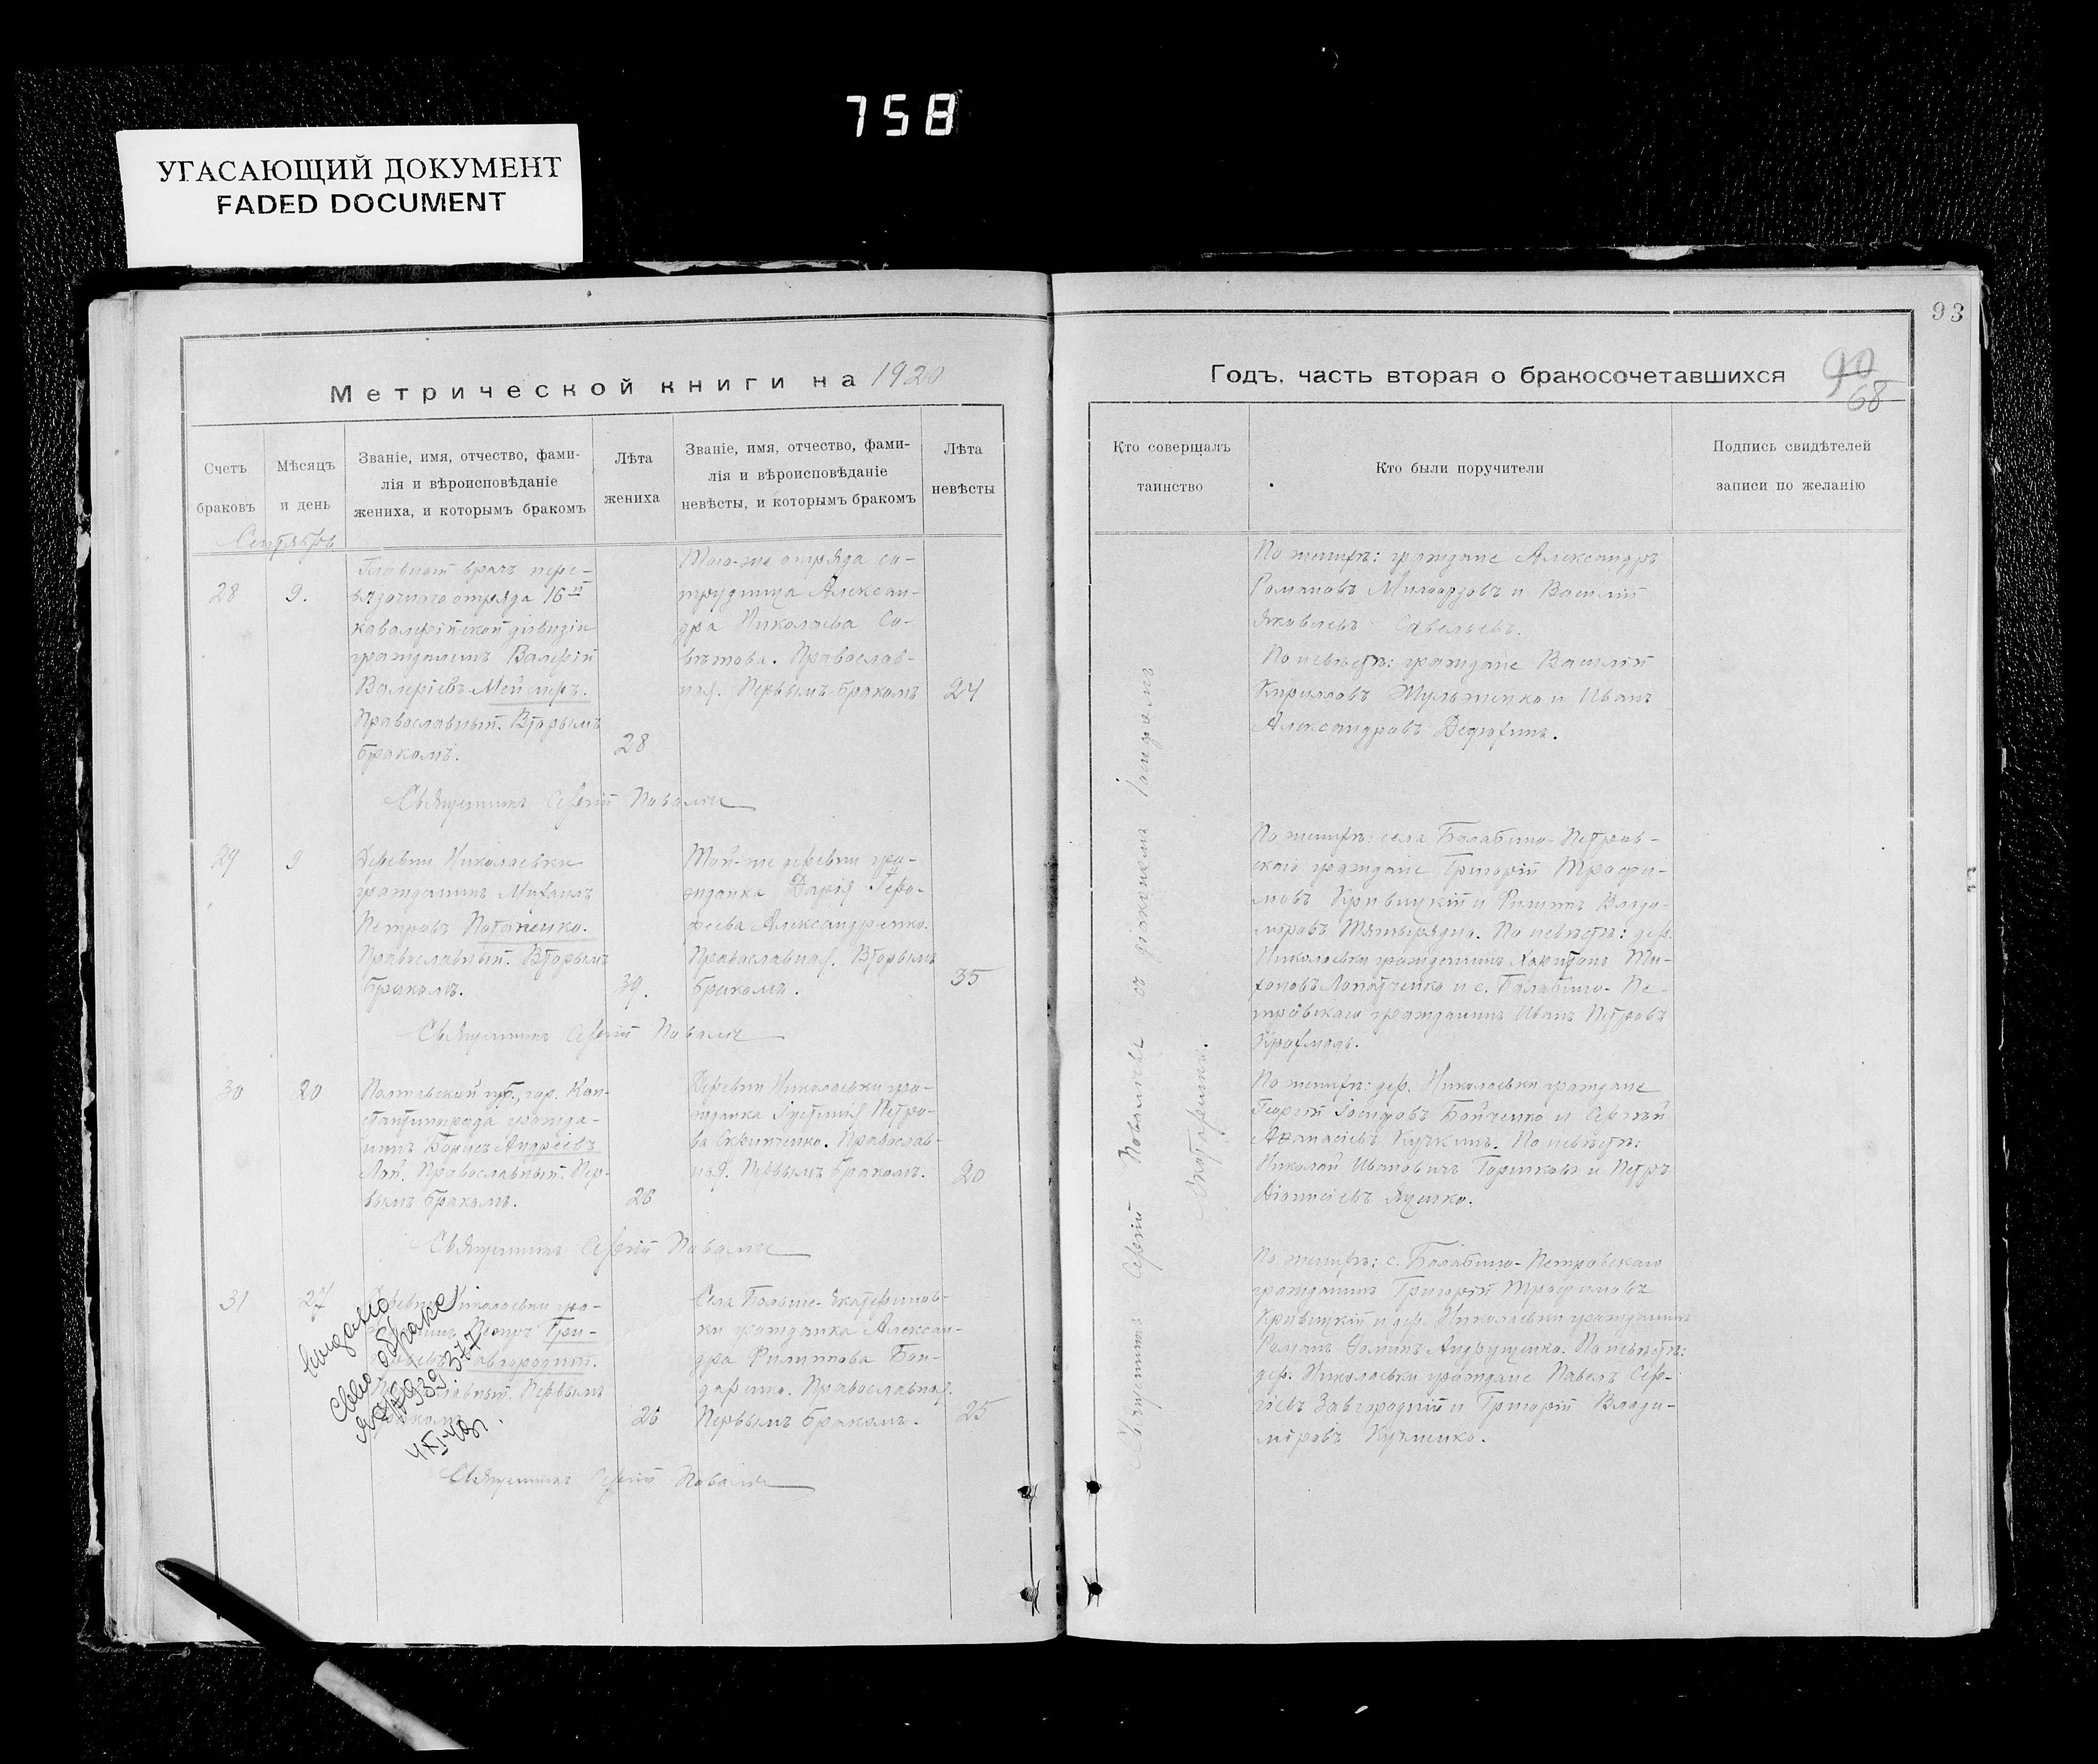 758
УГАСАЮЩИЙ ДОКУМЕНТ
FADED DOCUMENT
Метрической книги на 1920
Счетъ
браковъ
Мѣсяцъ
и день
Званіе, имя, отчество, фами-
лія и вѣроисповѣданіе
жениха, и которымъ бракомъ
Лѣта
жениха
Званіе, имя, отчество, фами-
лія и вѣроисповѣданіе
невѣсты, и которымъ бракомъ
Лѣта
невѣсты
Сентябрь
28
9.
Главный врачъ пере-
вязочного отряда 16й
кавалерійской дивизіи
гражданинъ Валерій
Валеріевъ Мейснеръ.
Православный. Вторымъ
бракомъ.
28
Того-же отряда со-
трудница Алексан-
дра Николаева Со-
вѣтова. Православ-
ная. Первымъ бракомъ
24
Священникъ Сергій
29
9
Деревни Николаевки
гражданинъ Михаилъ
Петровъ Потапенко.
Православный. Вторымъ
бракомъ.
39.
Той-же деревни гра-
жданка Дарія Геро-
Александренко.
Православная. Вторымъ
бракомъ.
35
Священникъ Сергій
30
20
Полтавской губ., гор. Кон-
стантинограда гражда-
нинъ Борисъ Андреевъ
Православный. Пер-
вымъ бракомъ.
26
Деревни Николаевки гра-
жданка Іустинія Петро-
ва Скрипченко. Православ-
ная. Первымъ бракомъ.
20
Священникъ Сергій
31
27
Деревни Николаевки гра-
Петръ Гри-
Завгородній.
Первымъ
26
Села Больше-Екатеринов-
ки гражданка Алексан-
дра Филиппова Бон-
даренко. Православная.
Первымъ бракомъ.
25
Выдано
свид. о браке
Священникъ Сергій
93
Годъ, часть вторая о бракосочетавшихся
90
68
Кто совершалъ
таинство
Кто были поручители
Подпись свидѣтелей
записи по желанію
Священникъ Сергій съ діакономъ
По женихѣ: граждане Александръ
Романовъ и Василій
Яковлевъ Савельевъ.
По невѣстѣ: граждане Василій
Кирилловъ Шульженко и Иванъ
Александровъ Дедюхинъ.
По женихѣ: села Балабино-Петров-
скаго граждане Григорій Трофи-
мовъ Кривицкій и Филиппъ Влади-
міровъ По невѣстѣ: дер.
Николаевки гражданинъ Харитонъ Ти-
хоновъ и с. Балабино-Пе-
тровскаго гражданинъ Иванъ Петровъ
Крохмаль.
По женихѣ: дер. Николаевки граждане
Георгій Іосифовъ Бойченко и Сергѣй
Аѳанасіевъ Кучкинъ. По невѣстѣ:
Николай Ивановичъ Горшковъ и Петръ
Діонисіевъ Яценко.
По женихѣ: с. Балабино-Петровскаго
гражданинъ Григорій Трофимовъ
Кривицкій и дер. Николаевки гражданинъ
Романъ Ѳоминъ Андрущенко. По невѣстѣ:
дер. Николаевки граждане Павелъ Сер-
гіевъ Завгородній и Григорій Влади-
міровъ